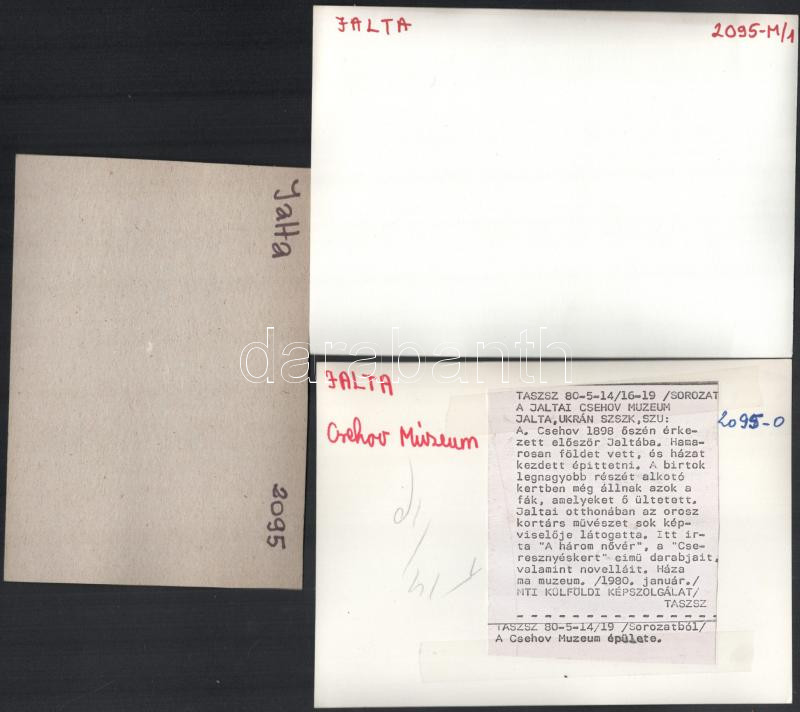 JALTA
2095-M/1
Jalta
2095
JALTA
Csehov Múzeum
2095-0
TASZSZ 80-5-14/16-19 /SOROZAT
A JALTAI CSEHOV MUZEUM
JALTA,UKRÁN SZSZK,SZU:
A. Csehov 1898 őszén érke-
zett először Jaltába. Hama-
rosan földet vett, és házat
kezdett épittetni. A birtok
legnagyobb részét alkotó
kertben még állnak azok a
fák, amelyeket ő ültetett.
Jaltai otthonában az orosz
kortárs művészet sok kép-
viselője látogatta. Itt ir-
ta "A három nővér", a "Cse-
resznyéskert" cimü darabjait,
valamint novelláit. Háza
ma muzeum. /1980. január./
MTI KÜLFÜLDI KÉPSZOLGÁLAT/
TASZSZ
TASZSZ 80-5-14/19 /Sorozatból/
A Csehov Muzeum épülete.
darabanth